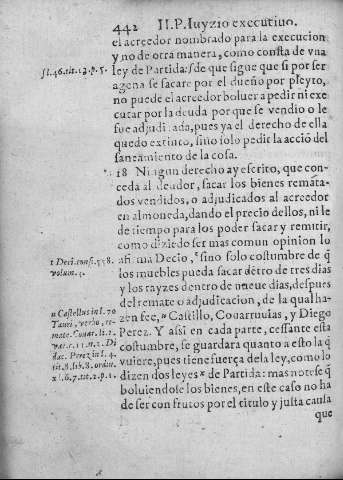 442 II.P. Iuyzio executiuo.
el acreedor nombrado para la execucion
y no de otra manera, como consta de vna
ley de Partida: ſ de que sigue que si por ser
ſ l.46.tit.13.p.5.
agena se sacare por el dueño por pleyto,
no puede el acreedor boluer a pedir ni exe
cutar por la deuda por que se vendio o le
fue adjudicada, pues ya el derecho de ella
quedo extinto, sino solo pedir la acció del
saneamiento de la cosa.
18 Ningun derecho ay escrito, que con-
ceda al deudor, sacar los bienes remata-
dos vendidos, o adjudicados al acreedor
en almoneda, dando el precio dellos, ni le
de tiempo para los poder sacar y remitir,
como diziēdo ser mas comun opinion lo
afirma Decio, t sino solo costumbre de q̃
t Deci.consi.
volum.
los muebles pueda sacar dētro de tres dias
y los rayzes dentro de nueue dias, despues
del remate o adjudicacion, de la qual ha-
zen fee, u Castillo, Couarruuias, y Diego
u Castellus in l.70
Tauri, verbo, re-
mate. Couar.li.2.
var.c.11.n.2. Di
dac. Perez in l.4.
tit.8.lib.8.ordin.
Perez. Y assi en cada parte, cessante esta
costumbre, se guardara quanto a esto la q̃
vuiere, pues tiene fuerça de la ley, como lo
dizen dos leyes x de Partida: mas notese q̃
x l.6.7.tit.2.p.1.
boluiendose los bienes, en este caso no ha
de ser con frutos por el titulo y justa causa
que